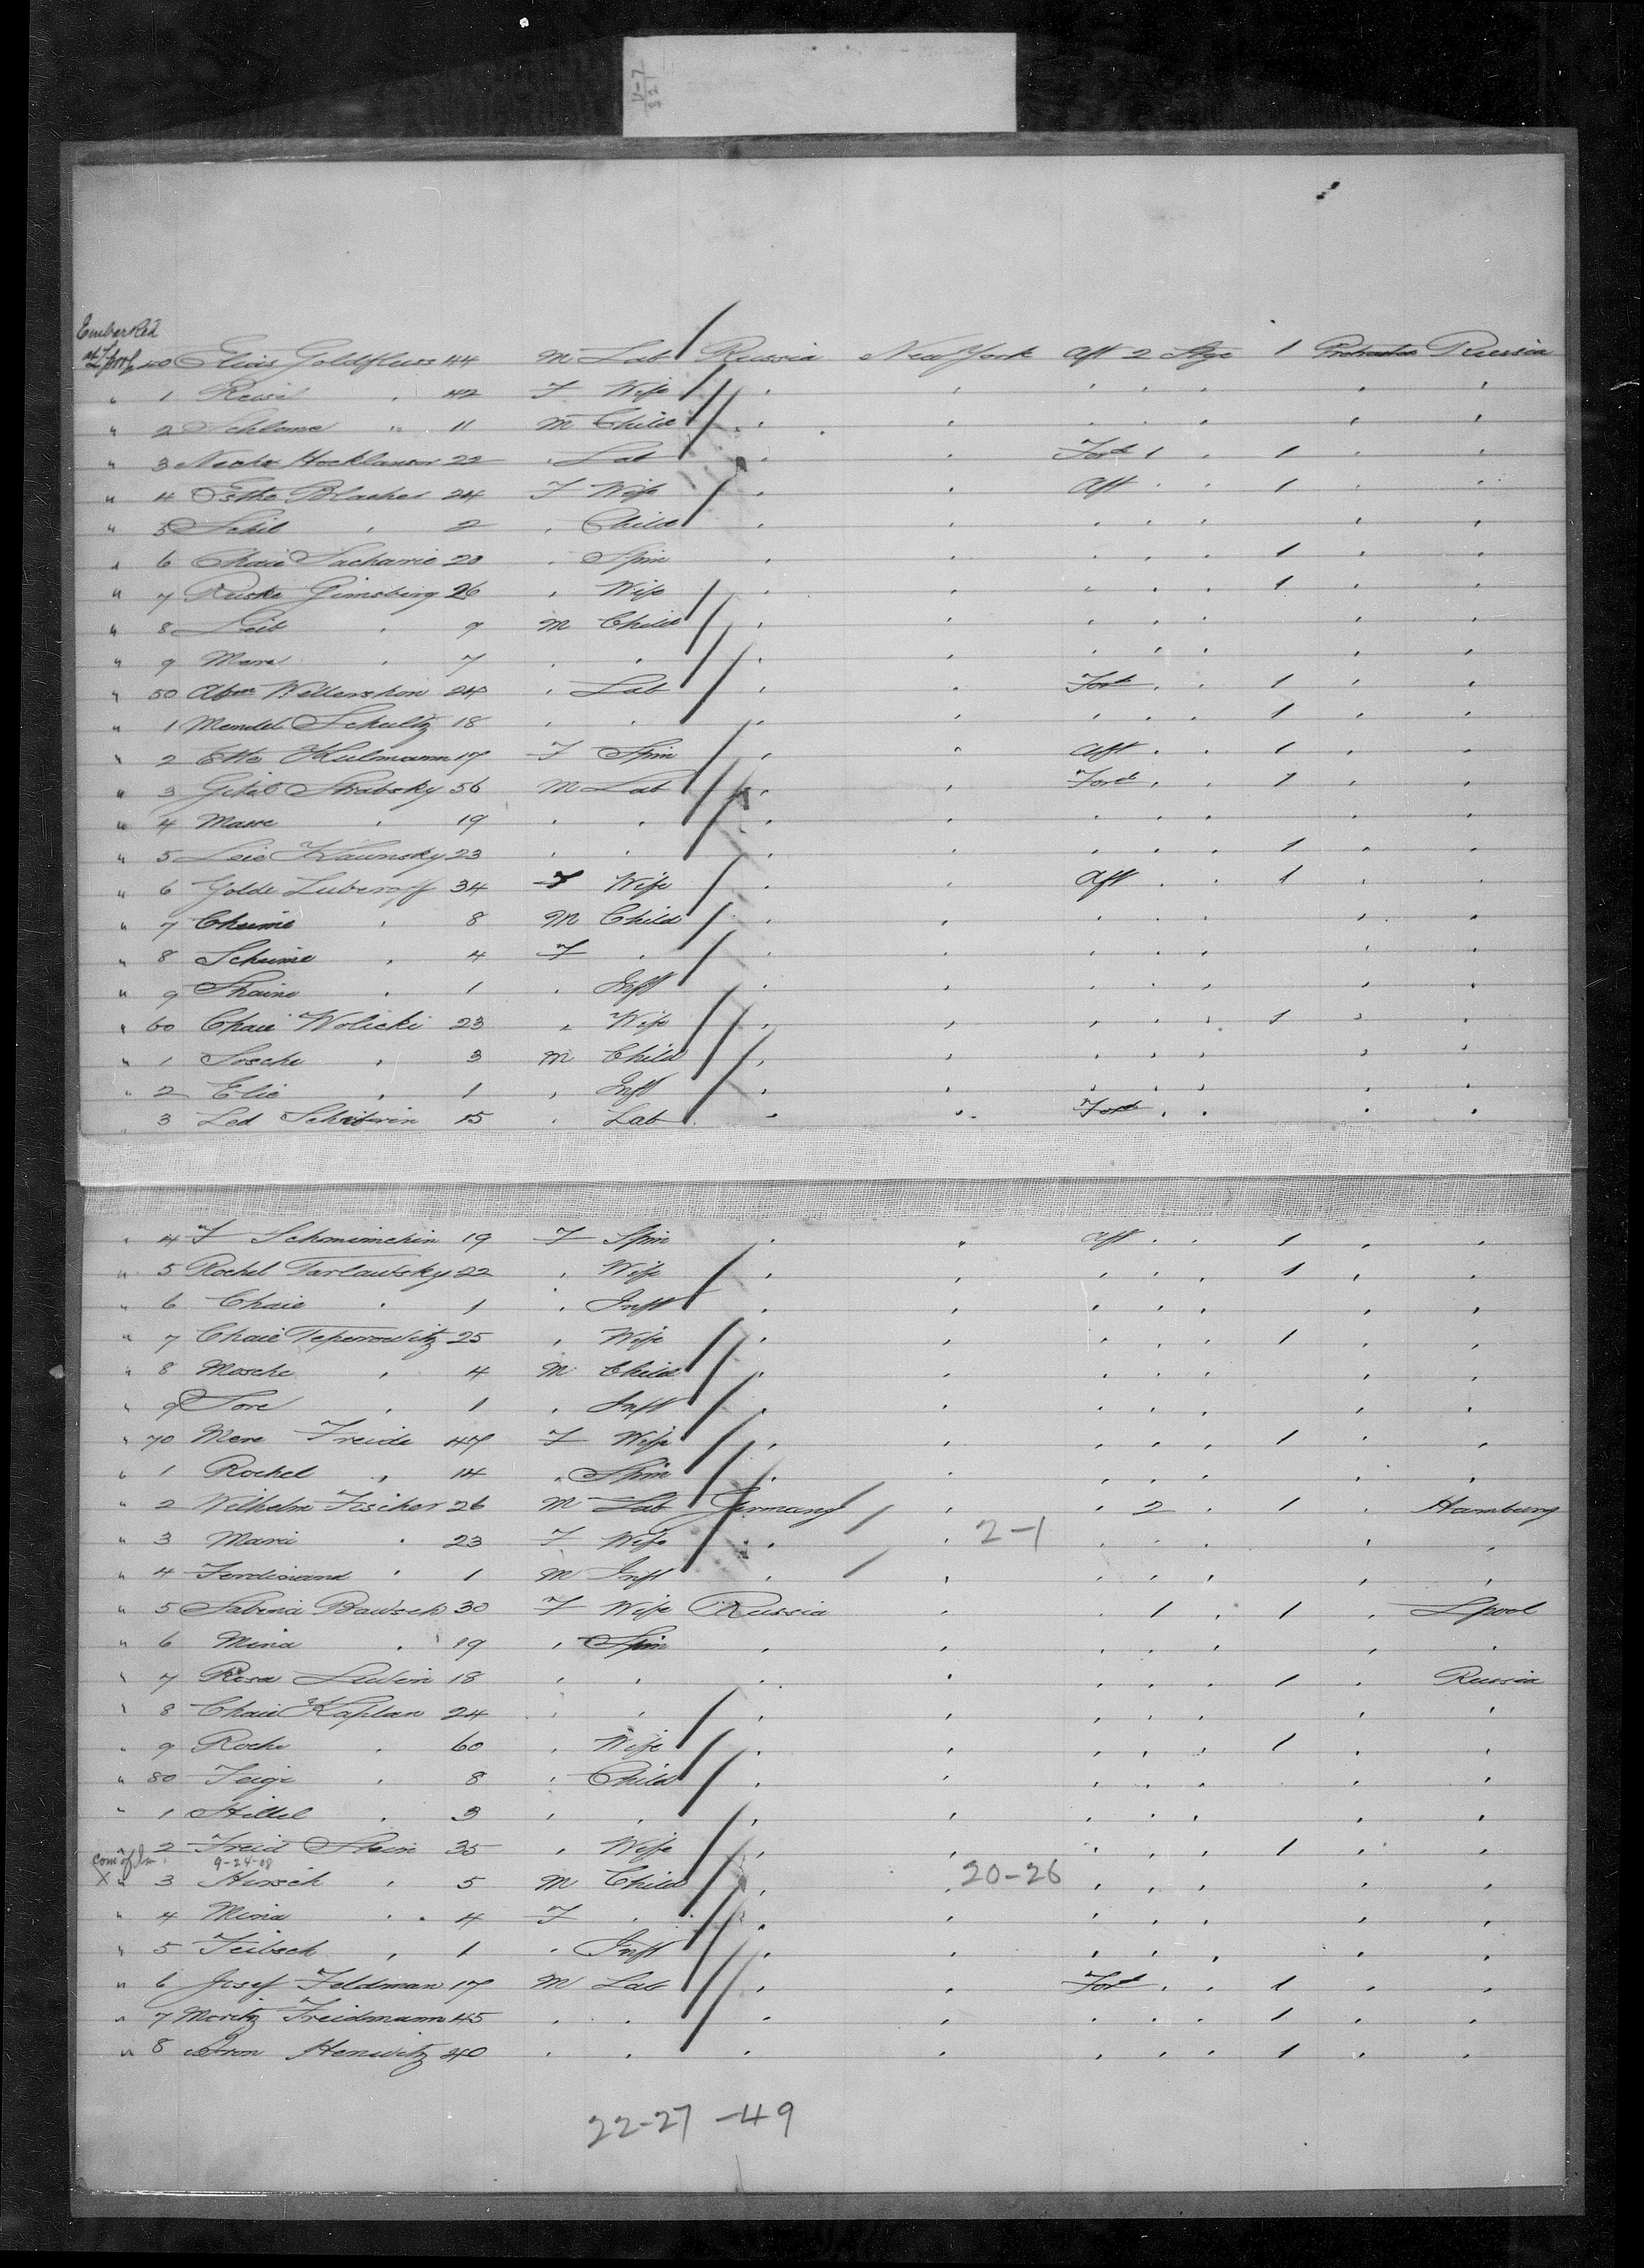 Embarked
at L'pool 40 Elias Goldfluss 44 M Lab Russia New York Aft 2 Stge 1 Protracted Russia
" 1 Reisel " 42 F Wife " " " " " " "
" 2 Schlome " 11 M Child " " " " " " "
" 3 Hocklanser 22 " Lab " " Ford 1 " 1 " "
" 4 Esthe Blacher 24 F Wife " " Aft " " 1 " "
" 5 " 2 " Child " " " " " " "
" 6 Chaie Sacharie 20 " Spin " " " " " 1 " "
" 7 Ruske Ginsberg 26 " Wife " " " " " 1 " "
" 8 Leib " 9 M Child " " " " " " "
" 9 " 7 " " " " " " " " "
" 50 Abm Wellershon 24 " Lab " " Ford " " 1 " "
" 1 Mendel Schultz 18 " " " " " " " 1 " "
" 2 Ette Kulmann 17 F Spin " " Aft " " 1 " "
" 3 Strabsky 56 M Lab " " Ford " " 1 " "
" 4 " 19 " " " " " " " " "
" 5 Leie Klaunsky 23 " " " " " " " 1 " "
" 6 Golde Luberoff 34 F Wife " " Aft " " 1 " "
" 7 Cheime " 8 M Child " " " " " " "
" 8 Scheime " 4 F " " " " " " " "
" 9 Shaine " 1 " Inft " " " " " " "
" 60 Chaie Wolicki 23 " Wife " " " " " 1 " "
" 1 Sosche " 3 M Child " " " " " " "
" 2 Elie " 1 " Inft " " " " " " "
" 3 Led 15 " Lab " " Ford " " " "
" 4 F Schmimchin 19 F Spin " " Aft " " 1 " "
" 5 Rochel Tarlautsky 22 " Wife " " " " " 1 " "
" 6 Chaie " 1 " Inft " " " " " " "
" 7 Chaie Teperowitz 25 " Wife " " " " " 1 " "
" 8 Mosche " 4 M Child " " " " " " "
" 9 Sore " 1 " Inft " " " " " " "
" 70 Mere Freide 47 F Wife " " " " " 1 " "
" 1 Rochel " 14 " Spin " " " " " " "
" 2 Wilhelm Fischer 26 M Lab Germany " " 2 " 1 " Hamburg
" 3 Marie " 23 F Wife " " 2-1 " " " " "
" 4 Ferdinand " 1 M Inft " " " " " " "
" 5 Sabina Bawsch 30 F Wife Russia " " 1 " 1 " Lpool
" 6 Mina " 19 " Spin " " " " " " "
" 7 Rosa Lewin 18 " " " " " " " 1 " Russia
" 8 Chaie Kaplan 24 " " " " " " " " "
" 9 Roche " 60 " Wife " " " " " 1 " "
" 80 Feige " 8 " Child " " " " " " "
" 1 Hillel " 3 " " " " " " " " "
" 2 Freid Stein 35 " Wife " " " " " 1 " "
9-24-08
X " 3 Hirsch " 5 M Child " " 20-26 " " " " "
" 4 Mina " 4 F " " " " " " " "
" 5 Feibsch " 1 " Inft " " " " " " "
" 6 Josef Feldman 17 M Lab " " Ford " " 1 " "
" 7 Moritz Freidmann 45 " " " " " " " 1 " "
" 8 Henwitz 40 " " " " " " " 1 " "
22-27-49